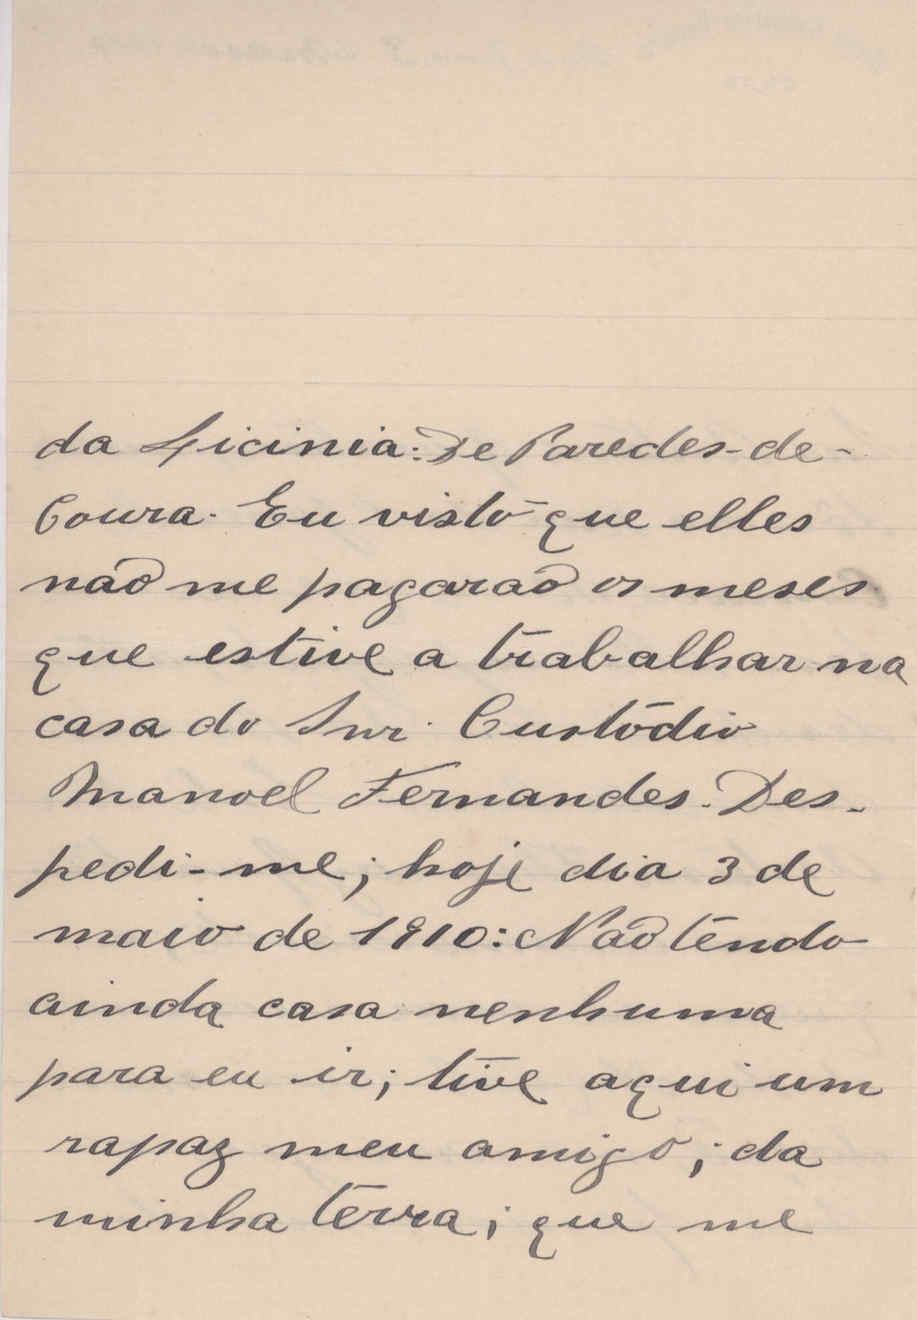 da Licinia: De Paredes-de-
Coura. Eu visto que elles
não me pagarão os meses
que estive a trabalhar na
casa do Snr. Custódio
Manoel Fernandes. Des-
pedi-me; hoje dia 3 de
maio de 1910: Não tendo
ainda casa nenhuma
para eu ir; tive aqui um
rapaz meu amigo; da
minha terra; que me